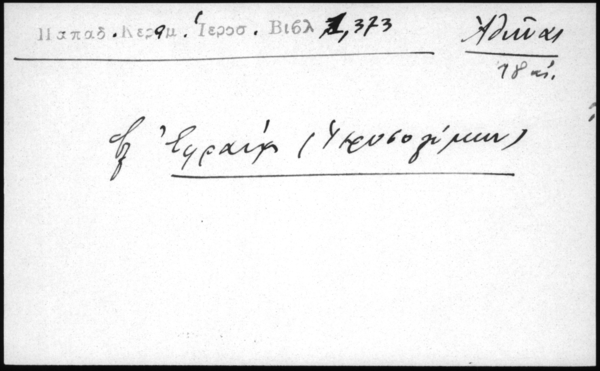 Παπαδ. Κεραμ. Ἱεροσ. Βιβλ 1,373
Ἀθῆναι
18 αἰ.
Ἐφραίμ (Ἱεροσολύμων)